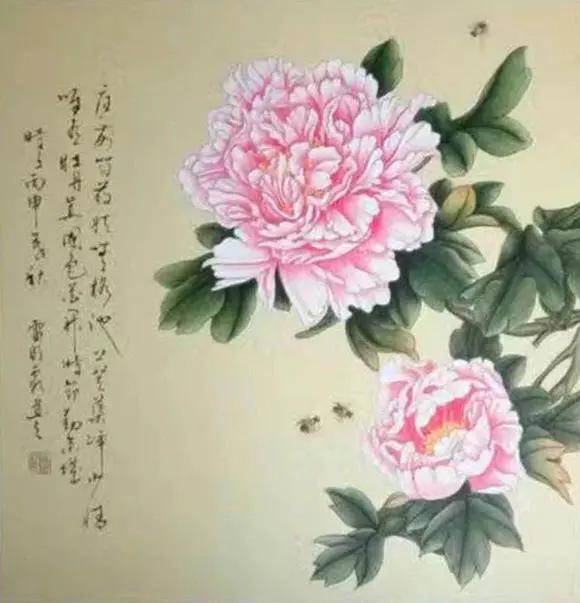 庭前芍药妖無格池上芙蕖净少情
唯有牡丹真国色花开時節動京城
時在丙申秋